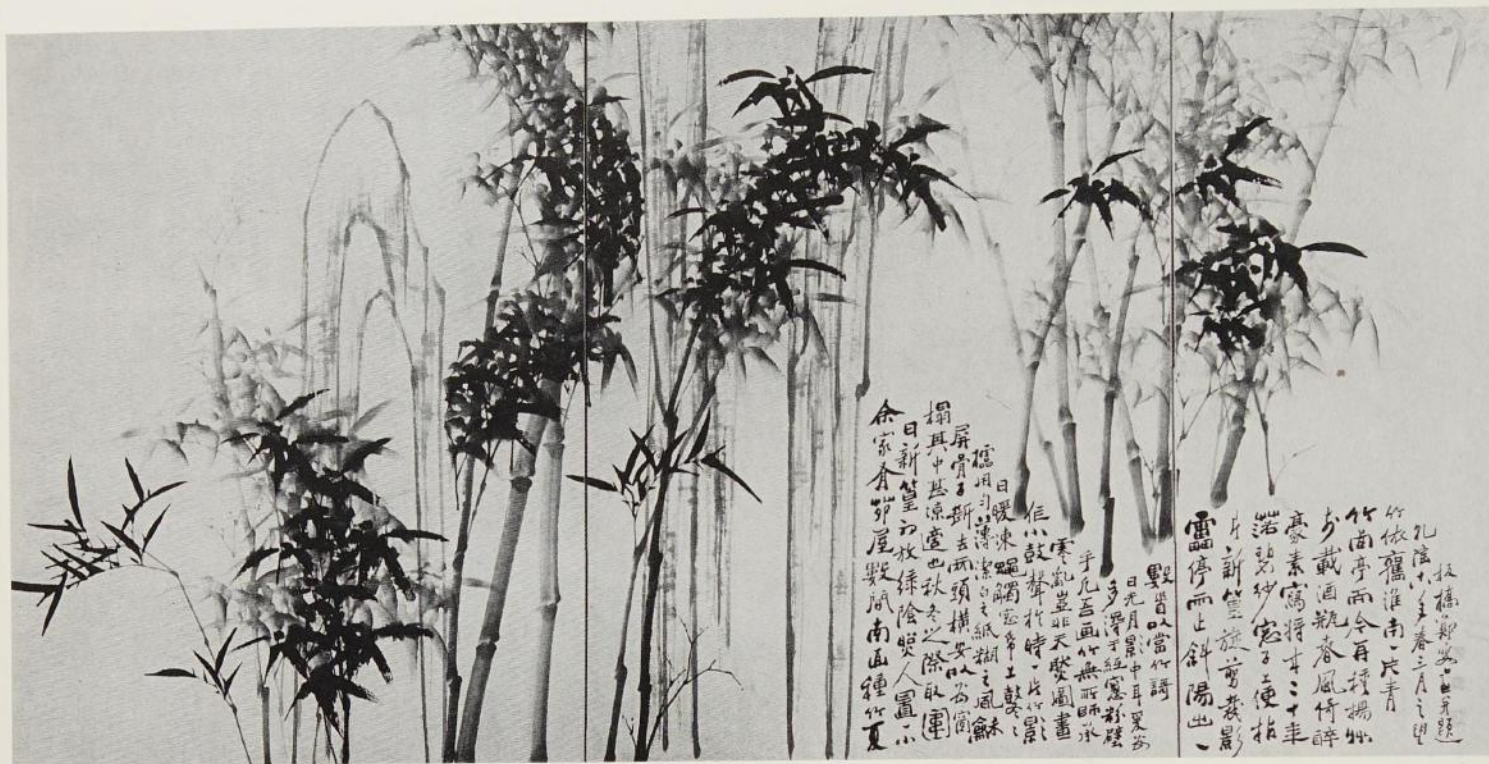 余家有茅屋數間南面種竹夏
日新篁初放綠陰照人置一小
榻其中甚涼適也秋冬之際取圍
屏骨子斷去兩頭橫安以為窗
櫺用勻薄潔白之紙糊之風和
日暖凍蠅觸窓紙上鼕〻
作小鼓聲於時一片竹影
零亂豈非天然圖畫
乎凡吾画竹無所師承
多得于紙窓粉壁
日光月影中耳爰為
數首以當竹譜
雷停雨止斜陽出一
片新篁旋剪裁影
落碧紗窓子上便拈
豪素寫將來二十年
前載酒瓶春風倚醉
竹西亭而今再種揚州
竹依舊淮南一片青
乾隆十八年春三月之望
板橋鄭燮畫并題